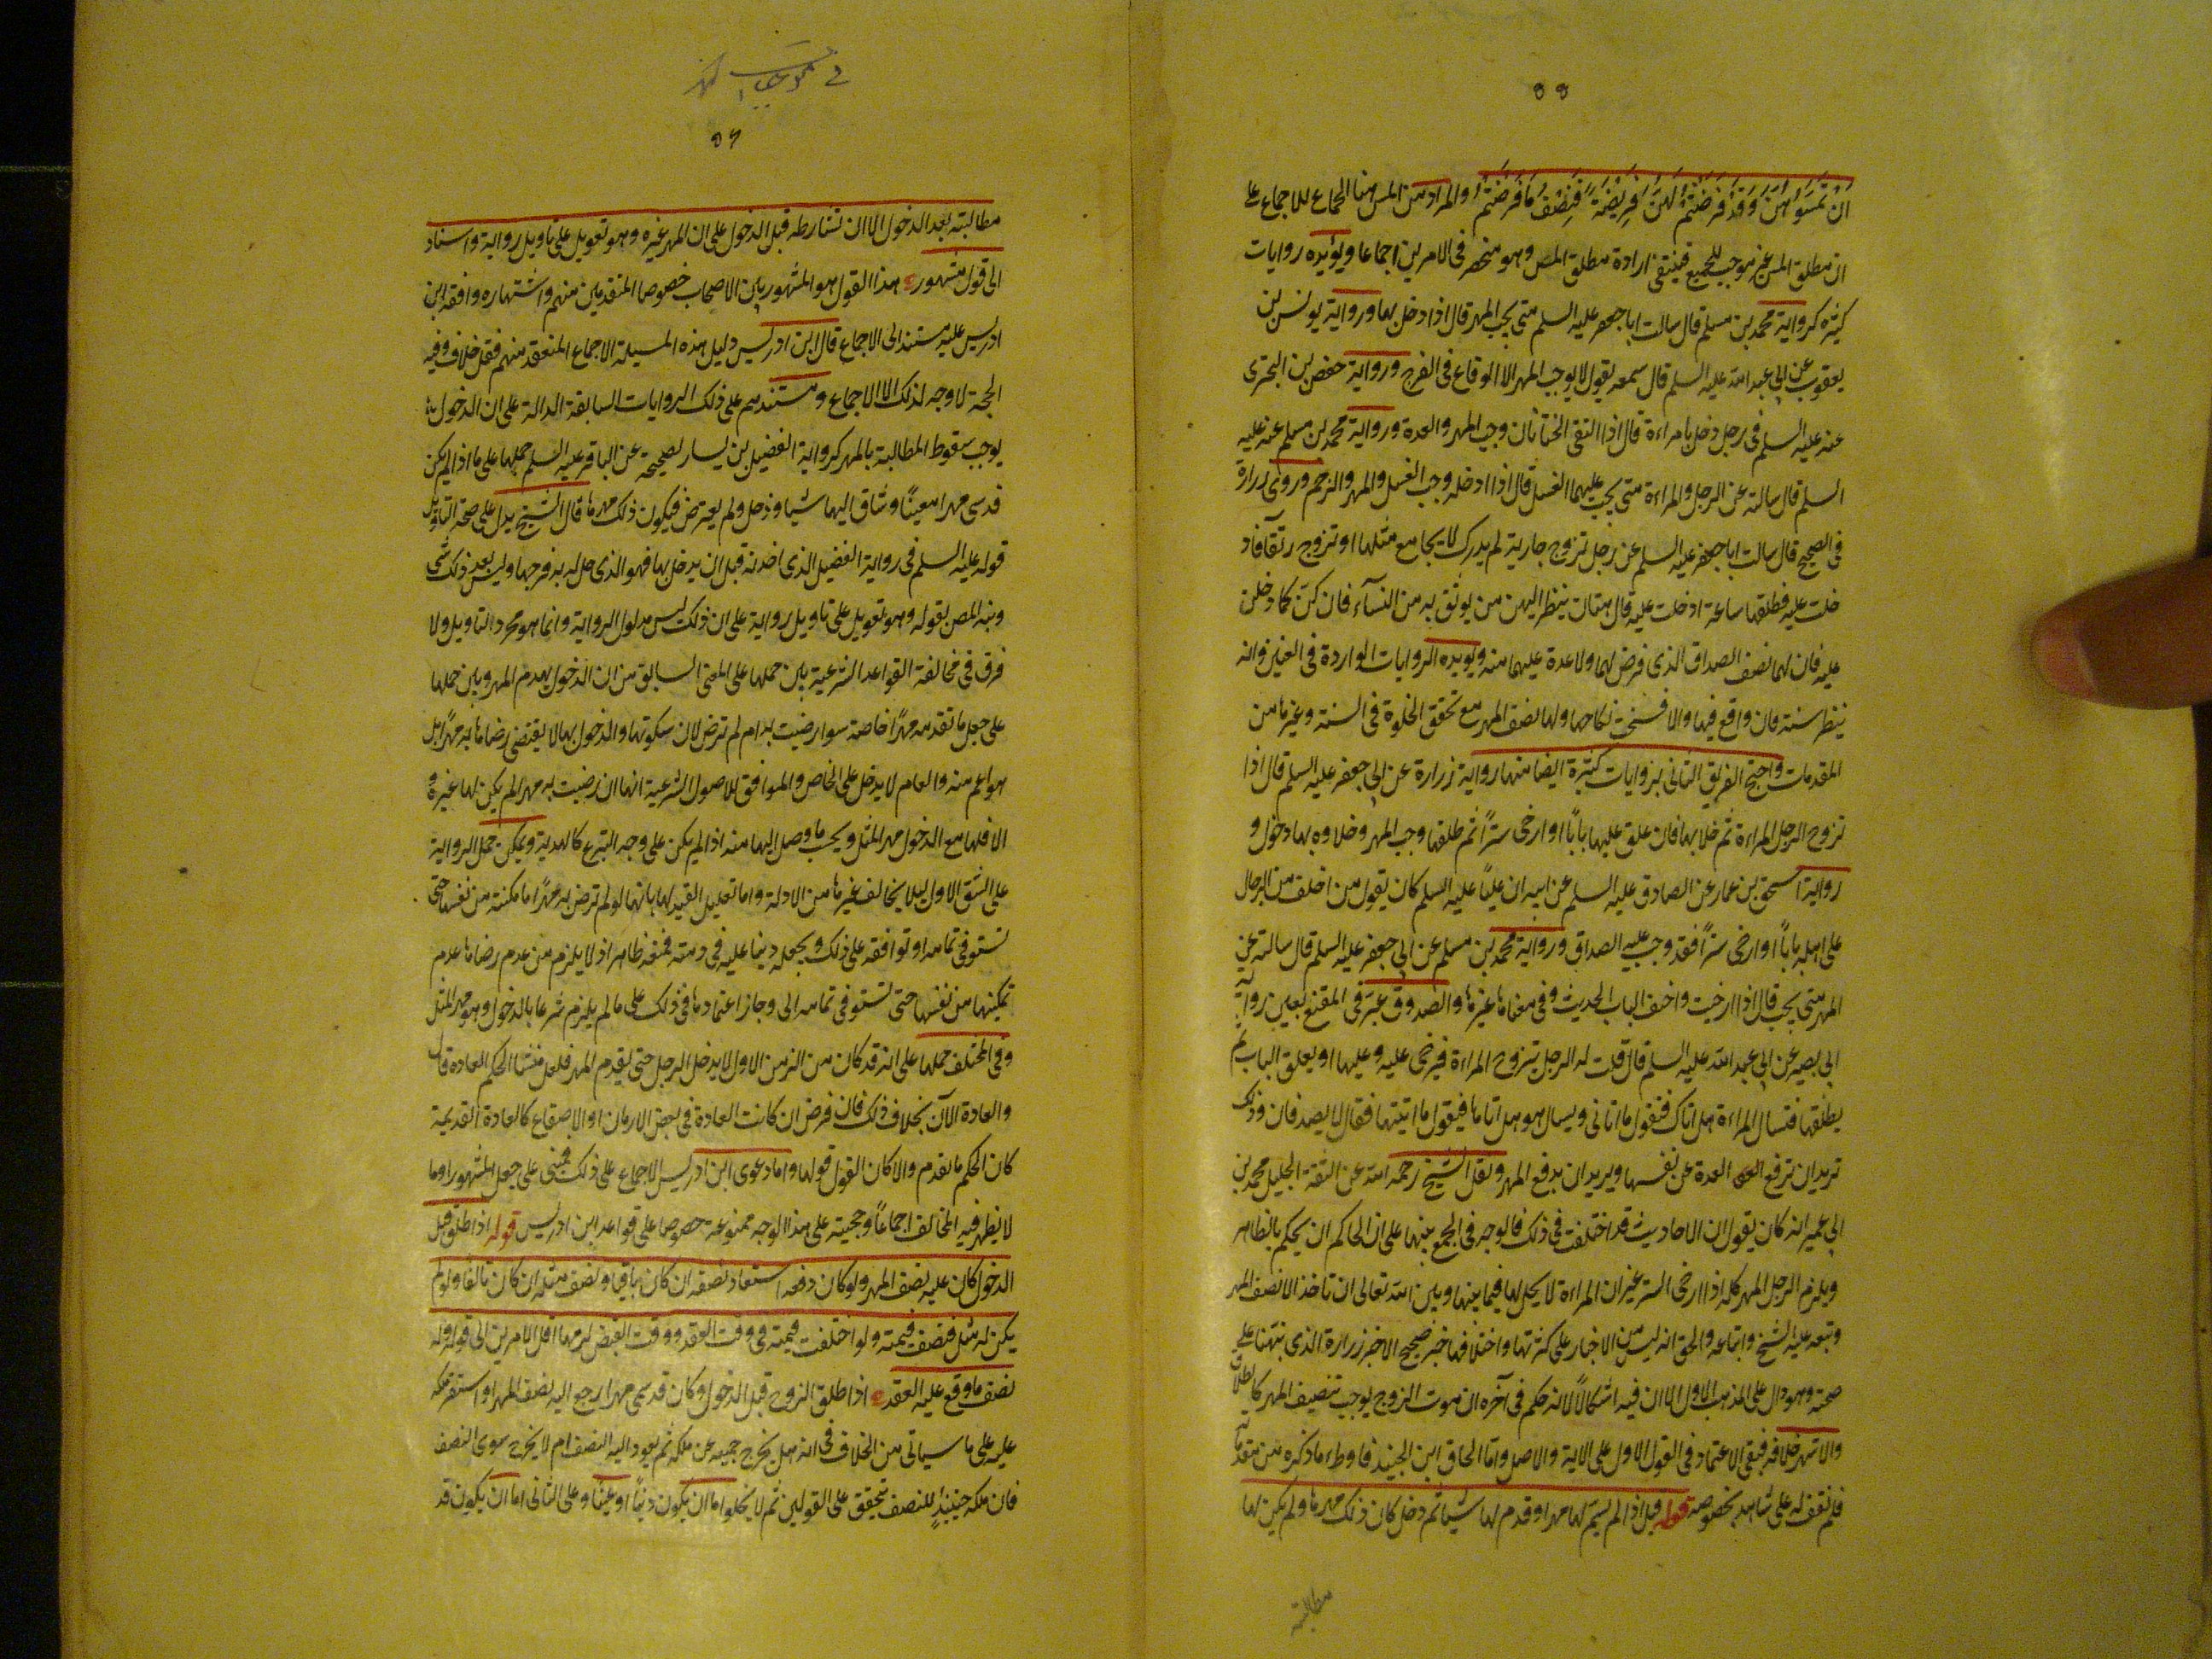 ٥٥
ان تمسوهن وقد فرضتم لهن فريضة فنصف ما فرضتم والمراد من المس هنا الجماع للاجماع على
ان مطلق المس غير موجب للجميع فينتفى ارادة مطلق المس وهو منحصر فى الامرين اجماعا ويؤيده روايات
كثيرة كرواية محمد بن مسلم قال سالت ابا جعفر عليه السلم متى يجب المهر قال اذا دخل بها ورواية يونس بن
يعقوب عن ابى عبد الله عليه السلم قال سمعه يقول لا يوجب المهر الا الوقاع فى الفرج ورواية حفص بن البخترى
عنه عليه السلم فى رجل دخل بامراءة قال اذا التقى الختانان وجب المهر والعدة ورواية محمد بن مسلم عنه عليه
السلم قال سالته عن الرجل والمراءة متى يجب عليهما الغسل قال اذا ادخله وجب الغسل والمهر والرجم وروى زرارة
فى الصحيح قال سالت ابا جعفر عليه السلم عن رجل تزوج جارية لم يدرك لا يجامع مثلها او تزوج رتقا فاد
خلت عليه فطلقها ساعة ادخلت عليه قال هتان ينظر اليهن من يوثق به من النسآء فان كن كما دخلن
عليه فان لها نصف الصداق الذى فرض لها ولا عدة عليهما منه ويويده الروايات الواردة فى العنين وانه
ينتظر سنة فان واقع فيها والا فسخت نكاحها ولها نصف المهر مع تحقق الخلوة فى السنة وغيرها من
المقدمات واحتج الفريق الثانى بروايات كثيرة ايضا منها رواية زرارة عن ابى جعفر عليه السلم قال اذا
تزوج الرجل المراءة ثم خلا بها فاغلق عليها بابًا او ارخى سترًا ثم طلقها وجب المهر وخلاوه بها دخول و
رواية اسحق بن عمار عن الصادق عليه السلم عن ابيه ان عليًا عليه السلم كان يقول من اغلق من الرجال
على اهله بابًا او ارخى سترًا فقد وجب عليه الصداق ورواية محمد بن مسلم عن ابى جعفر عليه السلم قال سالته عن
المهر متى يجب قال اذا ارخيت واجيف الباب الحديث وفى معناها غيرها والصدوق عبر فى المقنع بعين رواية
ابى بصير عن ابى عبد الله عليه السلم قال قلت له الرجل يتزوج المراءة فيرخى عليه وعليها او يغلق الباب ثم
يطلقها فتسال المراءة هل اتاك فتقول ما اتانى ويسال هو هل اتاها فيقول ما اتيتها فقال لا يصدقان وذلك
تريد ان ترفع العدة عن نفسها ويريد ان يدفع المهر ونقل الشيخ رحمه الله عن الثقة الجليل محمد بن
ابى عمير انه كان يقول ان الاحاديث قد اختلفت فى ذلك فالوجه فى الجمع بينها على ان الحاكم ان يحكم بالظاهر
ويلزم الرجل المهر كله اذا ارخى الستر غير ان المراءة لا يحل لها فيما بينها وبين الله تعالى ان تاخذ الا نصف المهر
وتبعه عليه الشيخ واتباعه والحق انه ليس من الاخبار على كثرتها واختلافها خبر صحيح الا خبر زرارة الذى نبهنا على
صحته وهو دال على المذهب الاول الا ان فيه اشكالًا لانه حكم فى آخره ان موت الزوج يوجب تنصيف المهر كالطلاق
والاشهر خلافه فبقى الاعتماد فى القول الاول على الاية والاصل واما الحاق ابن الجنيد فا وطء ما ذكره من مقدماته
فلم نقف له على شاهد بخصوصه قوله قيل اذا لم يسم لها مهرا وقدم لها شيئا ثم دخل كان ذلك مهرها ولم يكن لها
مطالبته
فى موجبات المهر
٥٦
مطالبته بعد الدخول الا ان تشارطه قبل الدخول على ان المهر غيره وهو تعويل على تاويل رواية واستناد
الى قول مشهور هذا القول هو المشهور بين الاصحاب خصوصا المتقدمين منهم واشتهاره وافقه ابن
ادريس عليه مستندا الى الاجماع قال ابن ادريس دليل هذه المسيلة الاجماع المنعقد منهم فقل خلاف وفيه
الحجة لا وجه لذلك الا الاجماع ومستندهم على ذلك الروايات السابقة الدالة على ان الدخول بها
يوجب سقوط المطالبة بالمهر كرواية الفضيل بن يسار لصحيحة عن الباقر عليه السلم حملها على ما اذا لم يكن
قد سمى مهرا معينًا وساق اليها شيا ودخل ولم يعترض فيكون ذلك مهرها قال الشيخ يدل على صحة التاويل
قوله عليه السلم فى رواية الفضيل الذى اخذته قبل ان يدخل بها فهو الذى حل له به فرجها وليس بعد ذلك شى
ونبه المص بقوله وهو تعويل على تاويل رواية على ان ذلك ليس مدلول الرواية وانما هو مجرد التاويل ولا
فرق فى مخالفة القواعد الشرعية بين حملها على المعنى السابق من ان الدخول يهدم المهر وبين حملها
على جعل ما تقدمه مهرًا خاصة سوا رضيت به ام لم ترض لان سكوتها والدخول بها لا يقتضى رضاها به مهرًا بل
هو اعم منه والعام لا يدل على الخاص والموافق للاصول الشرعية انها ان رضيت به مهرا لم يكن لها غيره و
الا فلها مع الدخول مهر المثل ويحسب ما وصل اليها منه اذا لم يكن على وجه التبرع كالهدية ويمكن حمل الرواية
على الشق الاول ليلا يخالف غيرها من الادلة واما تعليل المفيد لها بانها لو لم ترض به مهرًا ما مكنته من نفسها حتى
تستوفى تمامه او توافقه على ذلك ويجعله دينا عليه فى ذمته فمنعه ظاهر اذ لا يلزم من عدم رضاها عدم
تمكينها من نفسها حتى تستوفى تمامه الى وجاز اعتمادها فى ذلك على ما لم يلزم شرعا بالدخول وهو مهر المثل
وفى المختلف حملها على انه قد كان من الزمن الاول لا يدخل الرجل حتى يقدم المهر فلعل منشا الحكم العادة قال
والعادة الآن بخلاف ذلك فان فرض ان كانت العادة فى بعض الازمان او الاصقاع كالعادة القديمة
كان الحكم ما تقدم والا كان القول قولها واما دعوى ابن ادريس الاجماع على ذلك فمبنى على جعل المشهور او ما
لا يظهر فيه المخالف اجماعًا وحجيته على هذا الوجه ممنوعة خصوصا على قواعد ابن ادريس قوله اذا طلق قبل
الدخول كان عليه نصف المهر ولو كان دفعه استعاد نصفه ان كان باقيا ونصف مثله ان كان تالفا ولو لم
يكن له مثل فنصف قيمته ولو اختلفت قيمته فى وقت العقد ووقت القبض لزمها اقل الامرين الى قوله وله
نصف ما وقع عليه العقد اذا طلق الزوج قبل الدخول وكان قد سمى مهرا رجع اليه نصف المهر او استقر ملكه
عليه على ما سياتى من الخلاف فى انه هل يخرج جميعه عن ملكه ثم يعود اليه النصف ام لا يخرج سوى النصف
فان ملكه حينيذٍ للنصف يتحقق على القولين ثم لا يخلوا اما ان يكون دينًا او عينًا وعلى الثانى اما ان يكون قد